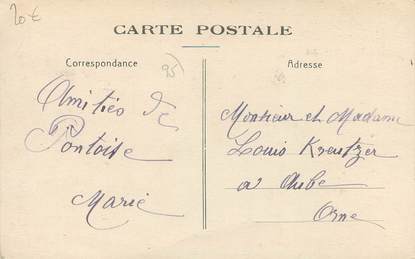 20 €
CARTE POSTALE
Correspondance
95
Adresse
Amitiés de
Pontoise
Marie
Monsieur et Madame
Louis Kreutzer
a Aube
Orne